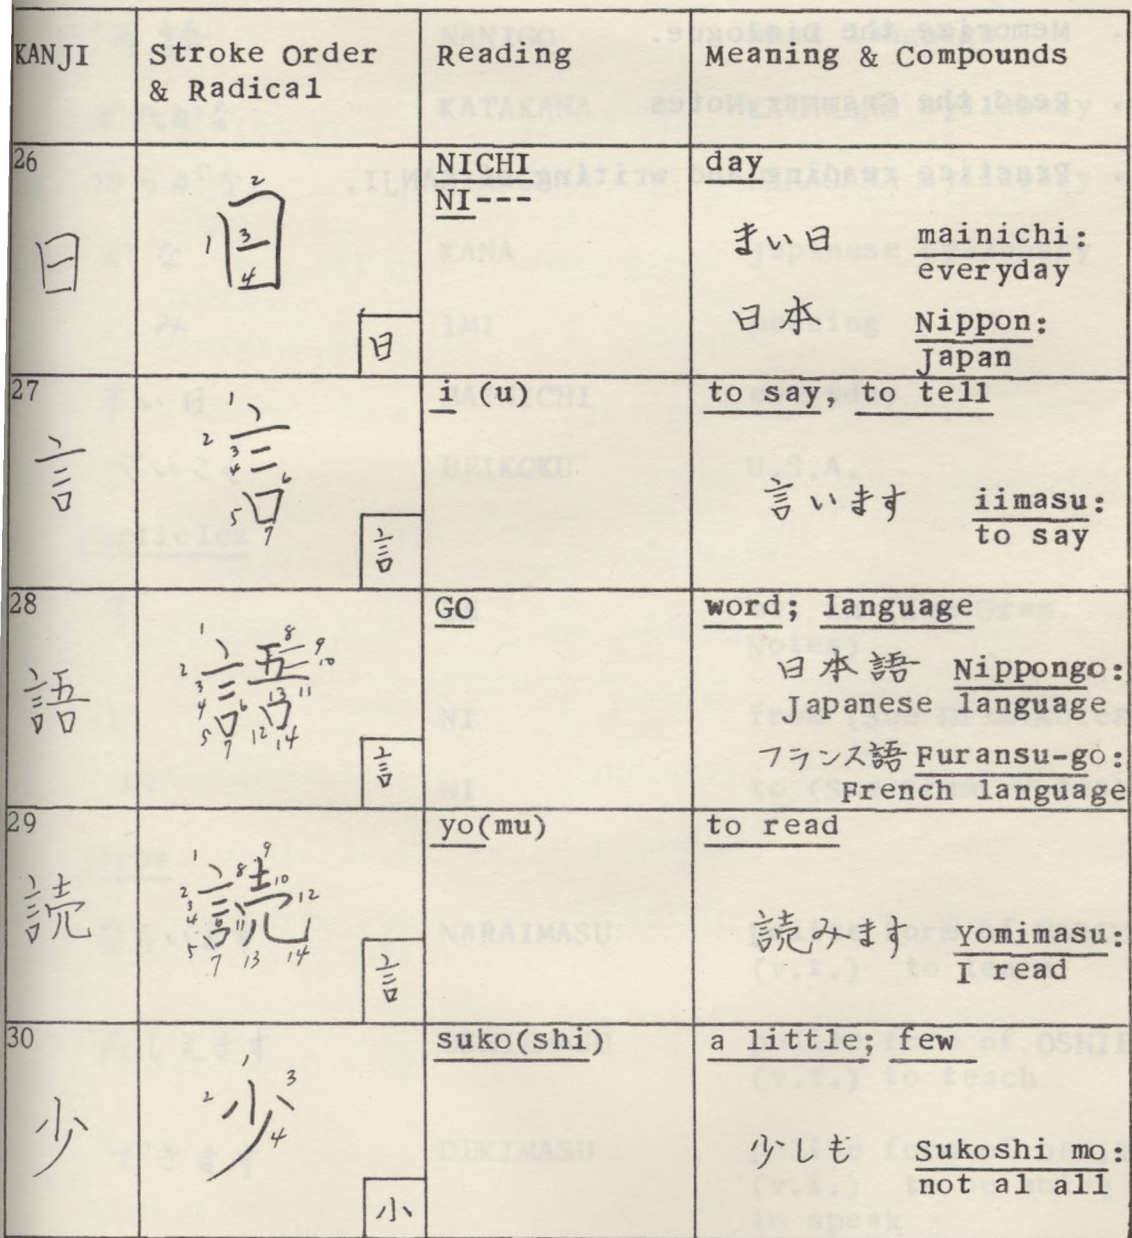 KANJI
Stroke Order
& Radical
Reading
Meaning & Compounds
26
日
1
2
3
4
日
NICHI
NI---
day
まい日 mainichi:
everyday
日本 Nippon:
Japan
27
言
1
2
3
4
5
6
7
言
i(u)
to say, to tell
言います iimasu:
to say
28
語
1
2
3
4
5
6
7
8
9
10
11
12
13
14
言
GO
word; language
日本語 Nippongo:
Japanese language
フランス語 Furansu-go:
French language
29
読
1
2
3
4
5
6
7
8
9
10
11
12
13
14
言
yo(mu)
to read
読みます Yomimasu:
I read
30
少
1
2
3
4
小
suko(shi)
a little; few
少しも Sukoshi mo:
not al all